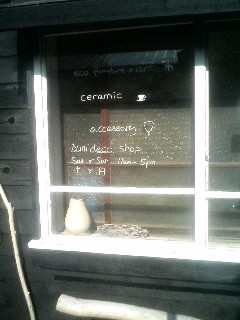 eco furniture & art
ceramic
accessory
Bumi deco shop
Sat & Sun 11am - 5pm
土 & 日